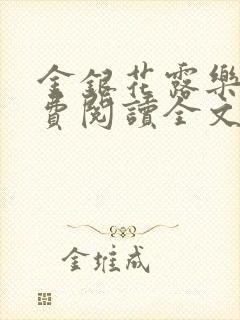 金銀花露樂
費閱讀全文
金堆成